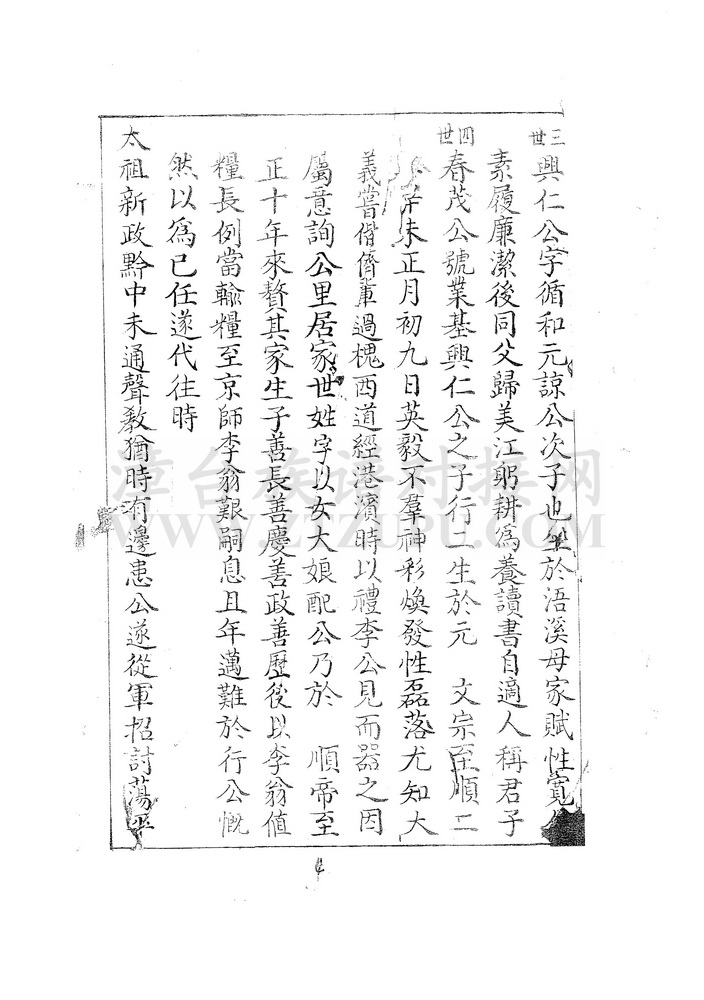 三世
興仁公字循和元諒公次子也生於浯溪母家賦性寬
素履廉潔後同父歸美江躬耕為養讀書自適人稱君子
四世
春茂公號業基興仁公之子行二生於元 文宗至順二
辛未正月初九日英毅不羣神彩煥發性磊落尤知大
義嘗偕儕輩過槐西道經港濱時以禮李公見而器之因
屬意詢公里居家世姓字以女大娘配公乃於 順帝至
正十年來贅其家生子善長善慶善政善歷後以李翁值
糧長例當輸糧至京師李翁艱嗣息且年邁難於行公慨
然以為已任遂代往時
太祖新政黔中未通聲教猶時有邊患公遂從軍招討蕩平
4
漳台族谱对接网
WWW.ZTZUPU.COM